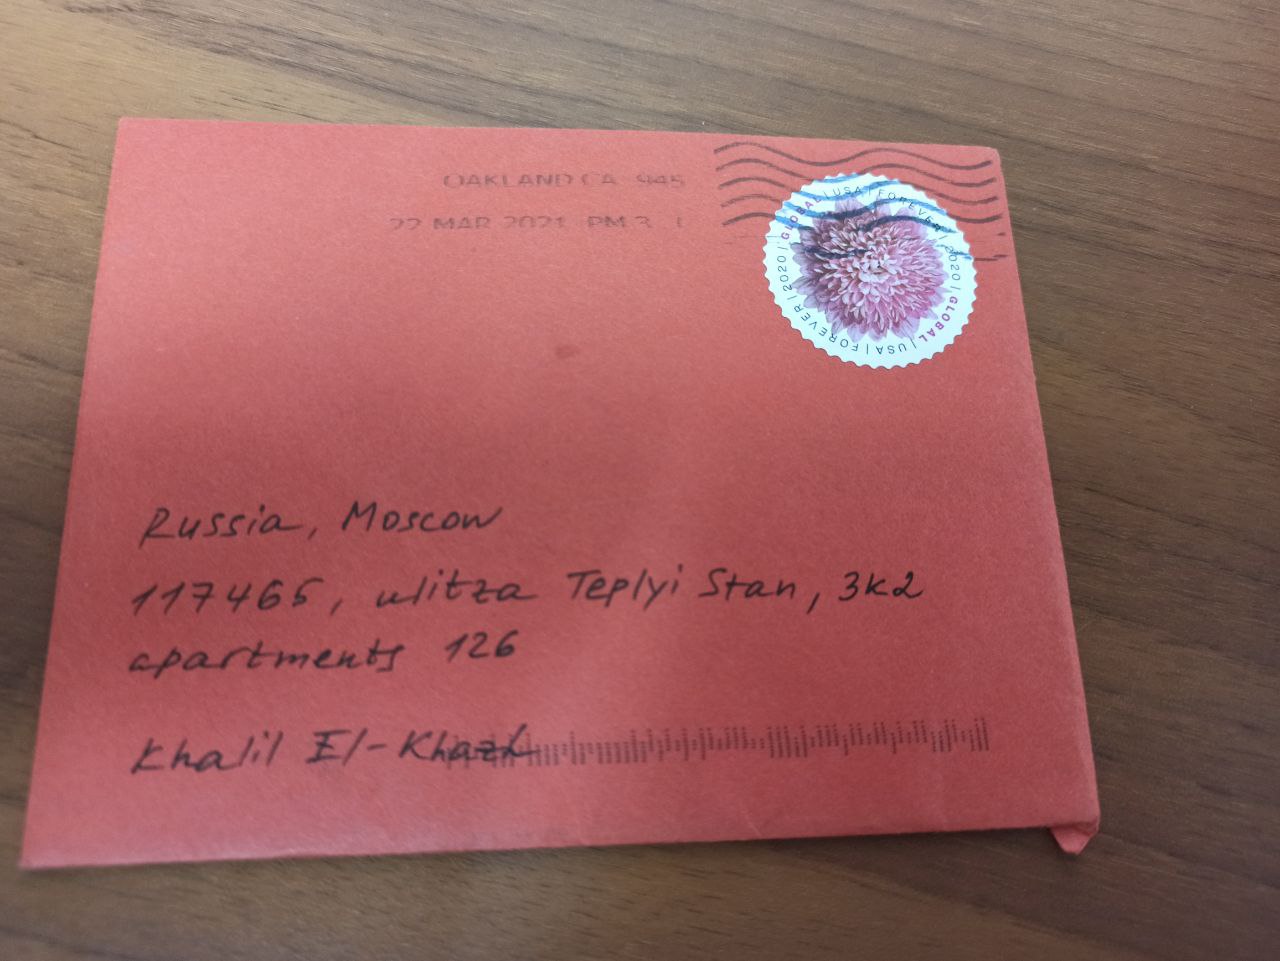 OAKLAND CA 945
22 MAR 2021 PM 3 L
GLOBAL | USA | FOREVER | 2020 | GLOBAL | USA | FOREVER | 2020 |
Russia, Moscow
117465, ulitza Teplyi Stan, 3k2
apartments 126
Khalil El-